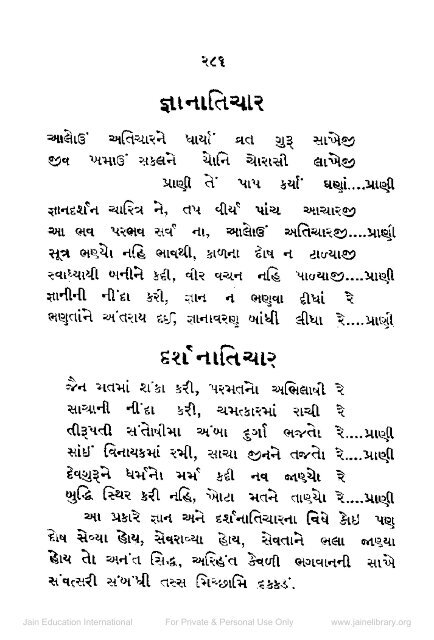 ૨૮૧
જ્ઞાનાતિચાર
આલોઉં અતિચારને ધાર્યા વ્રત ગુરૂ સાખેજી
જીવ ખમાઉં સકલને યોનિ ચોરાસી લાખેજી
પ્રાણી તેં પાપ કર્યાં ઘણાં....પ્રાણી
જ્ઞાનદર્શન ચારિત્ર ને, તપ વીર્ય પાંચ આચારજી
આ ભવ પરભવ સર્વ ના, આલોઉં અતિચારજી....પ્રાણી
સૂત્ર ભણ્યો નહિ ભાવથી, કાળના દોષ ન ટાળ્યાજી
સ્વાધ્યાયી બનીને કદી, વીર વચન નહિ પાળ્યાજી....પ્રાણી
જ્ઞાનીની નીંદા કરી, જ્ઞાન ન ભણવા દીધાં રે
ભણતાંને અંતરાય દઈ, જ્ઞાનાવરણ બાંધી લીધા રે....પ્રાણી
દર્શનાતિચાર
જૈન મતમાં શંકા કરી, પરમતનો અભિલાષી રે
સાચાની નીંદા કરી, ચમત્કારમાં રાચી રે
તીરૂપતી સંતોષીમા અંબા દુર્ગા ભજતો રે....પ્રાણી
સાંઈ વિનાયકમાં રમી, સાચા જીનને તજતો રે....પ્રાણી
દેવગુરૂને ધર્મનો મર્મ કદી નવ જાણ્યો રે
બુદ્ધિ સ્થિર કરી નહિ, ખોટા મતને તાણ્યો રે....પ્રાણી
આ પ્રકારે જ્ઞાન અને દર્શનાતિચારના વિષે કોઇ પણ
દોષ સેવ્યા હોય, સેવરાવ્યા હોય, સેવતાને ભલા જાણ્યા
હોય તો અનંત સિદ્ધ, અરિહંત કેવળી ભગવાનની સાખે
સંવત્સરી સંબંધી તસ્સ મિચ્છામિ દુક્કડં.
Jain Education International
For Private & Personal Use Only
www.jainelibrary.org